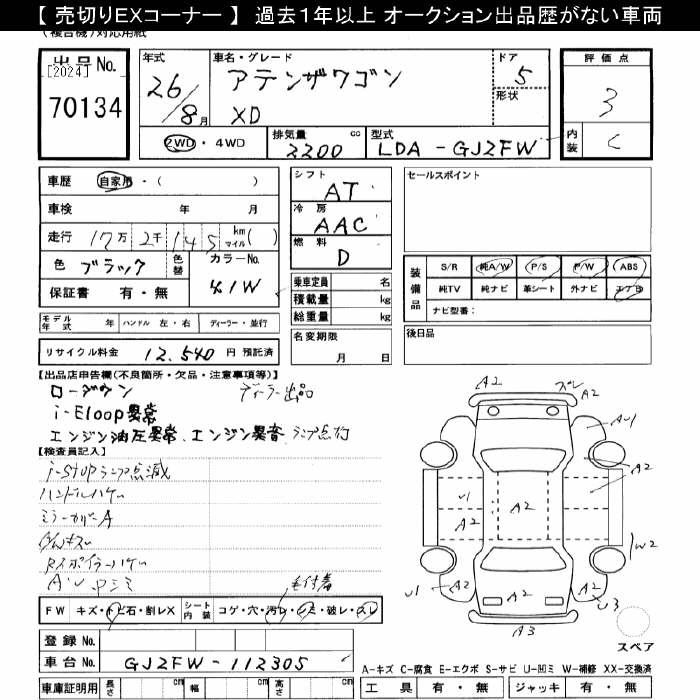 【 売切りEXコーナー 】 過去1年以上 オークション出品歴がない車両
(複合機)対応用紙
出品No.
[2024]
70134
年式
26/8月
車名・グレード
アテンザワゴン
XD
ドア
5
形状
評価点
3
内装
C
2WD ・ 4WD
排気量
2200 cc
型式
LDA - GJ2FW
車歴 自家用・( )
車検 年 月
走行 17万 2千 145 km マイル ( )
色 ブラック 色替 カラーNo.
41W
保証書 有・無
シフト
AT
冷房
AAC
燃料
D
乗車定員 名
積載量 kg
総重量 kg
セールスポイント
装備品
S/R 純A/W P/S P/W ABS
純TV 純ナビ 革シート 外ナビ エアB
ナビ型番:
モデル年式 年 ハンドル 左・右 ディーラー・並行
リサイクル料金 12,540 円 預託済
名変期限
月 日
後日品
【出品店申告欄(不良箇所・欠品・注意事項等)】
ローダウン ディーラー出品
i-Eloop異常
エンジン油圧異常、エンジン異音 ランプ点灯
【検査員記入】
i-stopランプ点滅
ハンドルハゲ
ミラーカバーA
Rスポイラーハゲ
毛付着
FW キズ・トビ石・割レX シート内装 コゲ・穴・汚レ・シミ・破レ・スレ
登録No.
車台No. GJ2FW-112305
車庫証明用 長さ cm 幅 cm 高さ cm
A2
ズレ
A2
A2
AU1
A2
U1
A2
A2
A2
W2
U1
A2
A2
A2
U3
A3
スペア
A-キズ C-腐食 E-エクボ S-サビ U-凹ミ W-補修 XX-交換済
工具 有・無 ジャッキ 有・無